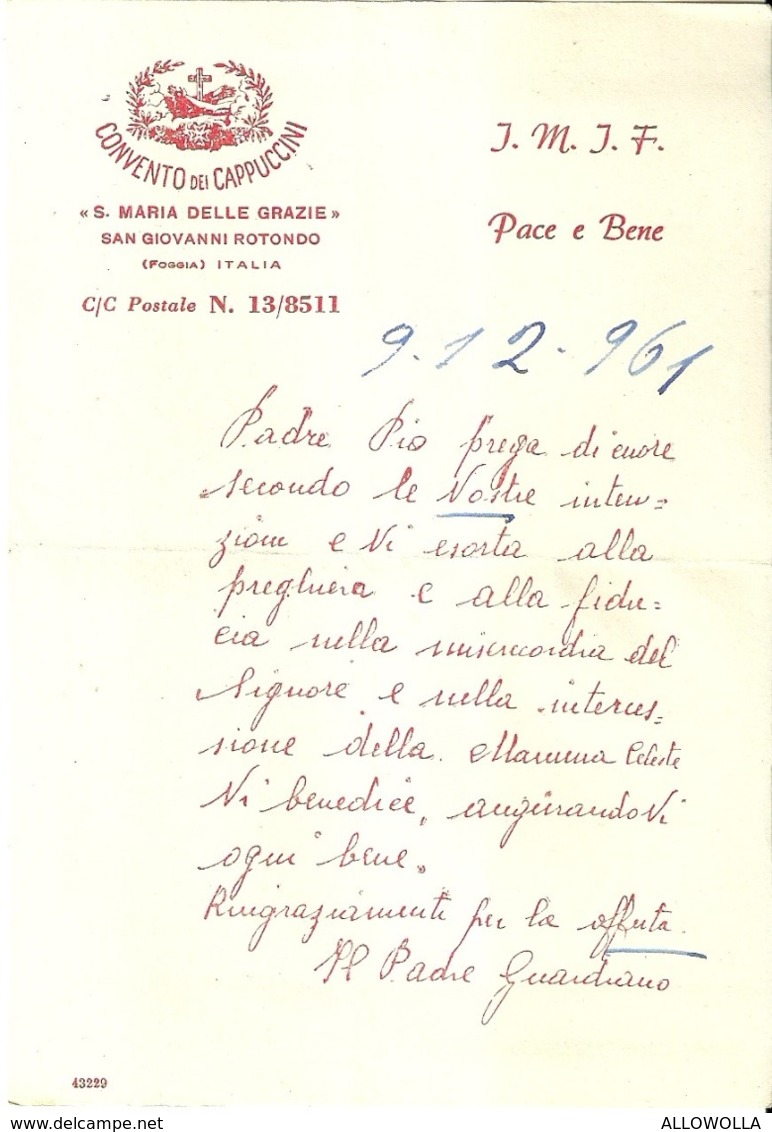 CONVENTO DEI CAPPUCCINI
« S. MARIA DELLE GRAZIE »
SAN GIOVANNI ROTONDO
(FOGGIA) ITALIA
C/C Postale N. 13/8511
J. M. J. F.
Pace e Bene
9-12-961
Padre Pio prega di cuore
secondo le Vostre inten=
zioni e Vi esorta alla
preghiera e alla fidu=
cia nella misericordia del
Signore e nella interces=
sione della Mamma Celeste
Vi benedice, augurandoVi
ogni bene.
Ringraziamenti per la offerta.
Il Padre Guardiano
43229
ALLOWOLLA